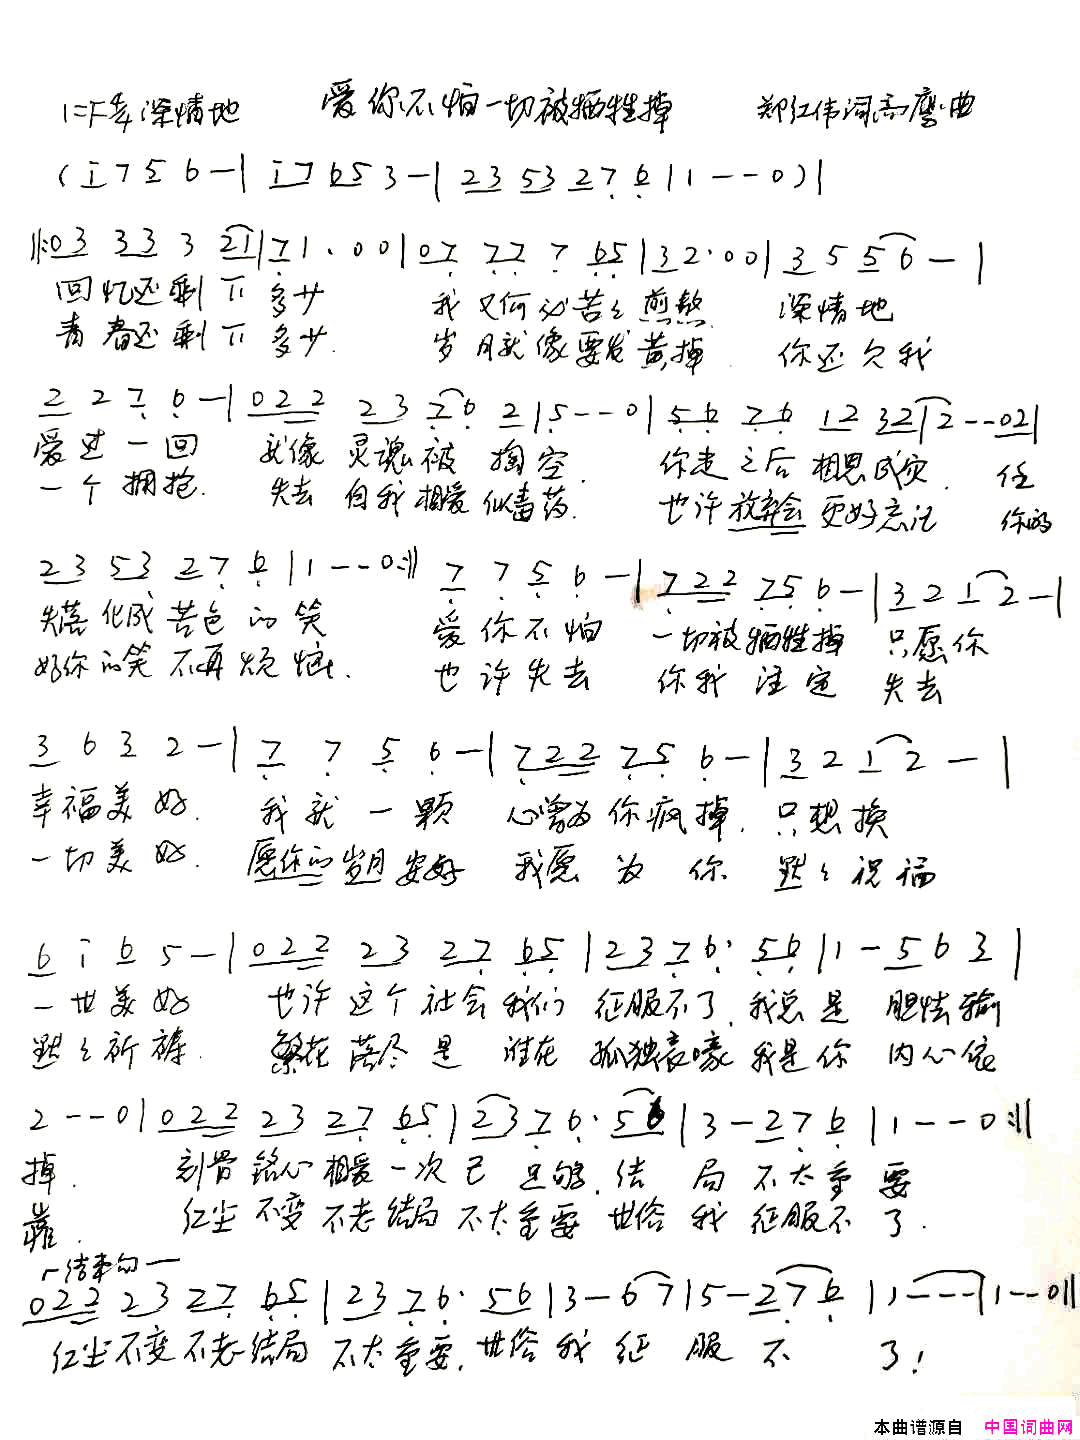 1=F 4/4 深情地 爱你不怕一切被牺牲掉 郑红伟词 高鹰曲
( i 7 5 6 - | i 7 6 5 3 - | 2 3 5 3 2 7 6 | 1 - - 0 ) |
‖: 0 3 3 3 3 2 1 | 7 1 · 0 0 | 0 7 7 7 7 6 5 | 3 2 · 0 0 | 3 5 5 6 - |
回忆还剩下 多少 我又何必苦々煎熬 深情地
青春还剩下 多少. 岁月就像要发黄掉. 你还欠我
2 2 7 6 - | 0 2 2 2 3 7 6 2 | 5 - - 0 | 5 6 7 6 1 2 3 2 1 | 2 - - 0 2 |
爱过一回 就像 灵魂被 掏空. 你走之后 相思成灾. 任
一个拥抱. 失去 自我相爱 似毒药. 也许放弃会更好忘记 你的
2 3 5 3 2 7 6 | 1 - - 0 :‖ 7 7 5 6 - | 7 2 2 7 5 6 - | 3 2 1 2 - |
失落 化成 苦色 的笑 爱你不怕 一切被牺牲掉 只愿你
好你的笑 不再烦恼. 也许失去 你我注定 失去
3 6 3 2 - | 7 7 5 6 - | 7 2 2 7 5 6 - | 3 2 1 2 - |
幸福美好. 我就一颗 心曾为你疯掉. 只想换
一切美好. 愿你的岁月安好 我愿为你 默々祝福
6 i 6 5 - | 0 2 2 2 3 2 7 6 5 | 2 3 7 6 · 5 6 | 1 - 5 6 3 |
一世美好 也许这个社会我们 征服不了. 我总是 胆怯输
默々祈祷. 繁花落尽是 谁在 孤独哀嚎 我是你 内心依
2 - - 0 | 0 2 2 2 3 2 7 6 5 | 2 3 7 6 · 5 6 | 3 - 2 7 6 | 1 - - 0 :‖
掉. 刻骨铭心相爱一次已 足够. 结局不太重要
靠. 红尘不变不老结局 不太重要 世俗我征服不了.
┌结束句一
0 2 2 2 3 2 7 6 5 | 2 3 7 6 · 5 6 | 3 - 6 7 | 5 - 2 7 6 | 1 - - - | 1 - - 0 ‖
红尘不变不老结局 不太重要. 世俗我征服不了!
本曲谱源自 中国词曲网